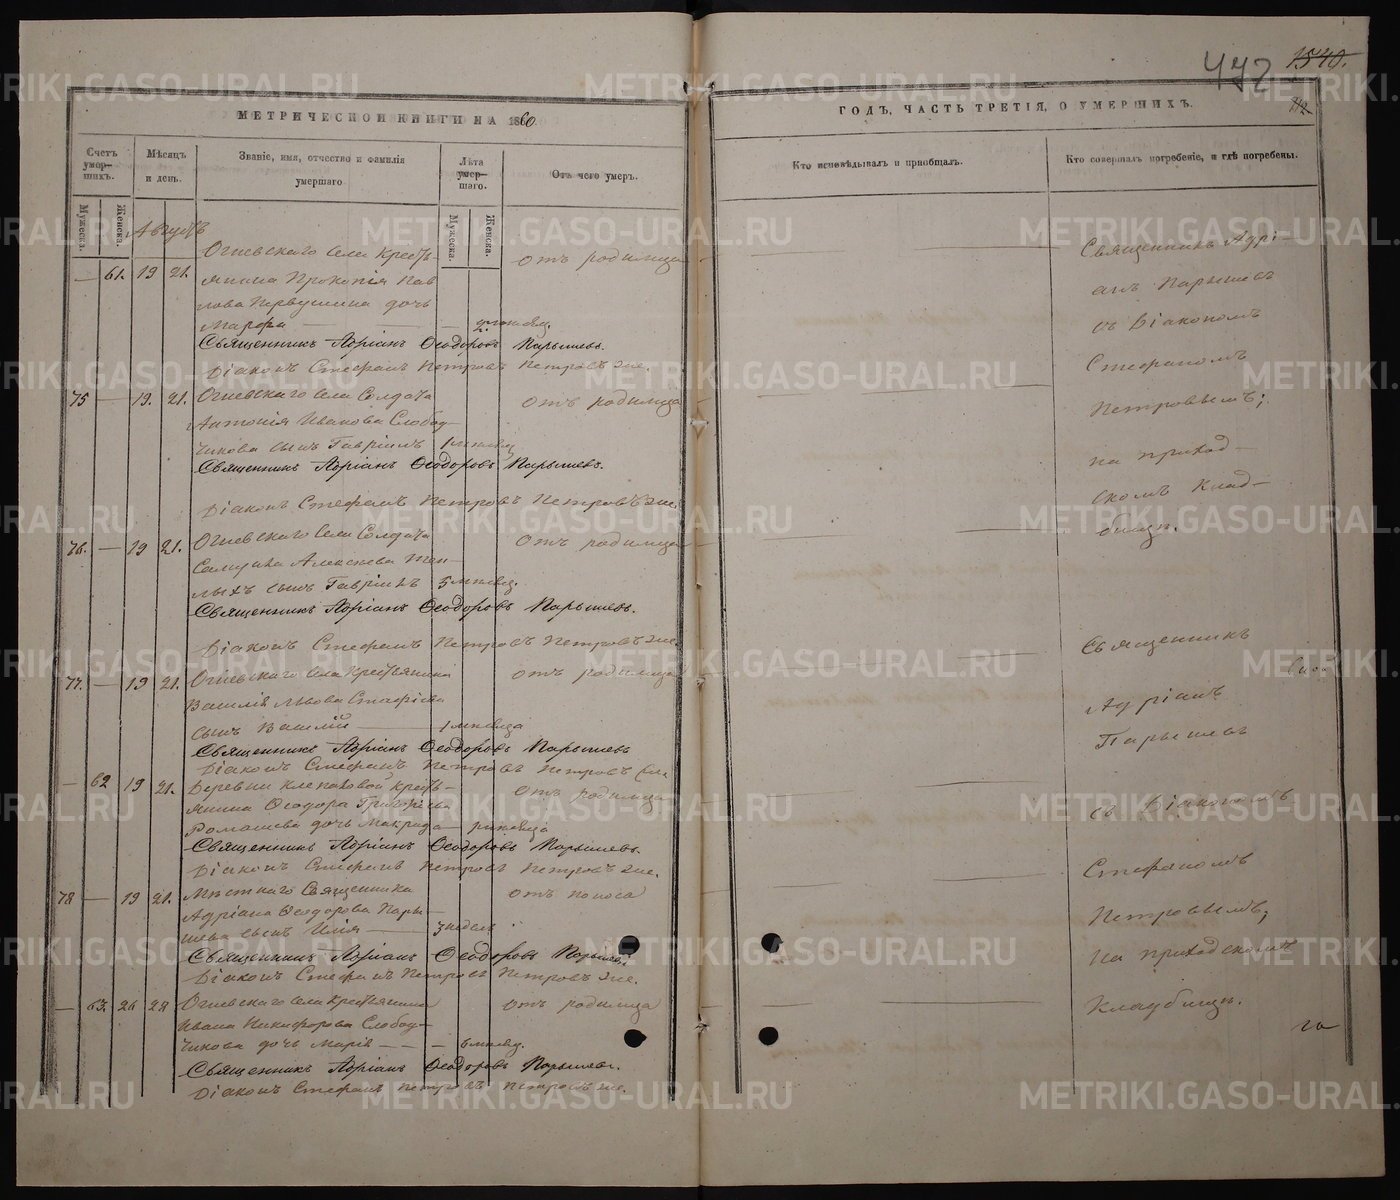 442 1540.
МЕТРИЧЕСКОЙ КНИГИ НА 1860
ГОДЪ, ЧАСТЬ ТРЕТІЯ, О УМЕРШИХЪ.
Счетъ умер-шихъ.
Мѣсяцъ и день.
Званіе, имя, отчество и фамилія умершаго
Лѣта умер-шаго.
Отъ чего умеръ.
Кто исповѣдывалъ и пріобщалъ.
Кто совершалъ погребеніе, и гдѣ погребены.
Мужеска.
Женска.
Мужеска.
Женска.
Августъ
Огневскаго села Кресть-
— 61. 19 21. янина Прокопія Пав отъ родимца
лова Первушина дочь
Марфа — — 2 мѣсяц.
Священникъ Адріанъ Ѳеодоровъ Парышевъ.
Діаконъ Стефанъ Петровъ Петровъ
75 — 19. 21. Огневскаго села Солдата отъ родимца
Антонія Иванова Слобод
чикова сынъ Гавріилъ 1 мѣсяц
Священникъ Адріанъ Ѳеодоровъ Парышевъ.
Діаконъ Стефанъ Петровъ Петровъ
76. — 19 21. Огневскаго села Солдата отъ родимца
Алексѣева Теп-
лыхъ сынъ Гавріилъ 5 мѣсяц.
Священникъ Адріанъ Ѳеодоровъ Парышевъ.
Діаконъ Стефанъ Петровъ Петровъ
77. — 19 21. Огневскаго села Крестьянина отъ родимца
Василія Львова
сынъ Василій — 1 мѣсяца
Священникъ Адріанъ Ѳеодоровъ Парышевъ
Діаконъ Стефанъ Петровъ Петровъ
— 62 19 21. Деревни Клепаловой кресть- отъ родимца
янина Ѳеодора Григорьева
Ромашева дочь Макрида — мѣсяца
Священникъ Адріанъ Ѳеодоровъ Парышевъ.
Діаконъ Стефанъ Петровъ Петровъ
78 — 19 21. Мѣстнаго Священника отъ поноса
Адріана Ѳеодорова Пары-
шева сынъ Илія — 3 недел.
Священникъ Адріанъ Ѳеодоровъ Парышевъ
Діаконъ Стефанъ Петровъ Петровъ
— 63. 26 28 Огневскаго села Крестьянина отъ родимца
Ивана Никифорова Слобод-
чикова дочь Марія — — — 6 мѣсяц.
Священникъ Адріанъ Ѳеодоровъ Парышевъ.
Діаконъ Стефанъ Петровъ Петровъ
Священникъ Адрі-
анъ Парышевъ
съ Діакономъ
Стефаномъ
Петровымъ;
на приход-
скомъ клад-
бищѣ.
Священникъ
Адріанъ
Парышевъ
съ Діакономъ
Стефаномъ
Петровымъ;
на приходскомъ
Кладбищѣ.
METRIKI.GASO-URAL.RU